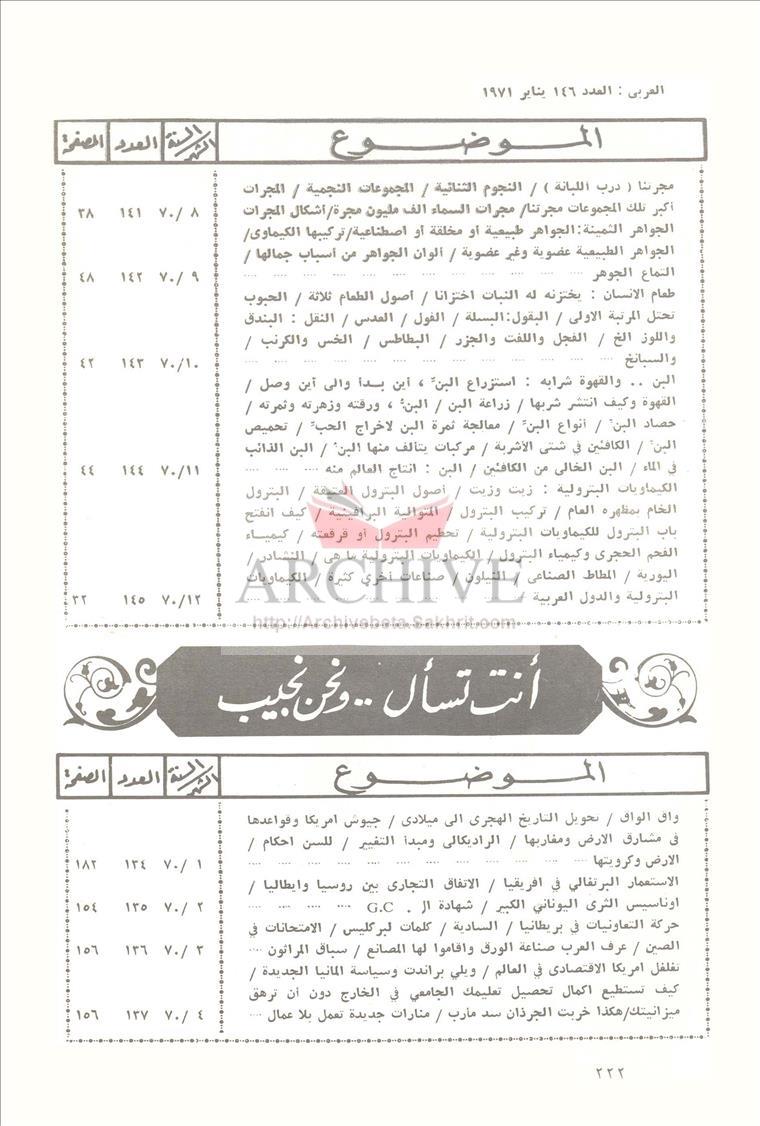 العربى : العدد ١٤٦ يناير ١٩٧١
الموضوع السنة الشهر العدد الصفحة
مجرتنا ( درب اللبانة ) / النجوم الثنائية / المجموعات النجمية / المجرات
أكبر تلك المجموعات مجرتنا/ مجرات السماء الف مليون مجرة/أشكال المجرات ٨ /٧٠ ١٤١ ٣٨
الجواهر الثمينة: الجواهر طبيعية أو مخلقة أو اصطناعية/تركيبها الكيماوى/
الجواهر الطبيعية عضوية وغير عضوية / ألوان الجواهر من أسباب جمالها /
التماع الجوهر .... ٩ /٧٠ ١٤٢ ٤٨
طعام الانسان : يختزنه له النبات اختزانا / أصول الطعام ثلاثة / الحبوب
تحتل المرتبة الاولى / البقول: البسلة / الفول / العدس / النقل : البندق
واللوز الخ / الفجل واللفت والجزر / البطاطس / الخس والكرنب /
والسبانخ .... ١٠/٧٠ ١٤٣ ٤٢
البن .. والقهوة شرابه : استزراع البنّ ، أين بدأ والى أين وصل /
القهوة وكيف انتشر شربها / زراعة البن / البنّ ، ورقته وزهرته وثمرته /
حصاد البنّ / أنواع البنّ / معالجة ثمرة البن لاخراج الحبّ / تحميص
البنّ / الكافئين في شتى الأشربة / مركبات يتألف منها البنّ / البن الذائب
في الماء / البن الخالى من الكافئين / البن : انتاج العالم منه .... ١١/٧٠ ١٤٤ ٤٤
الكيماويات البترولية : زيت وزيت / أصول البترول العتيقة / البترول
الخام بمظهره العام / تركيب البترول / المتوالية البرافينية / كيف انفتح
باب البترول للكيماويات البترولية / تحطيم البترول أو قرقعته / كيمياء
الفحم الحجرى وكيمياء البترول / الكيماويات البترولية ما هى / النشادر /
اليورية / المطاط الصناعى / النيلون / صناعات أخري كثيرة / الكيماويات
البترولية والدول العربية .... ١٢/٧٠ ١٤٥ ٣٢
ARCHIVE
http://Archivebeta.Sakhrit.com
أنت تسأل .. ونحن نجيب
الموضوع السنة الشهر العدد الصفحة
واق الواق / تحويل التاريخ الهجرى الى ميلادى / جيوش امريكا وقواعدها
فى مشارق الارض ومغاربها / الراديكالى ومبدأ التغيير / للسن احكام /
الارض وكرويتها .... ١ /٧٠ ١٣٤ ١٨٢
الاستعمار البرتغالي في افريقيا / الاتفاق التجارى بين روسيا وايطاليا /
اوناسيس الثرى اليوناني الكبير / شهادة الـ G.C. .... ٢ /٧٠ ١٣٥ ١٥٤
حركة التعاونيات في بريطانيا / السادية / كلمات لبركليس / الامتحانات في
الصين / عرف العرب صناعة الورق واقاموا لها المصانع / سباق المراثون .... ٣ /٧٠ ١٣٦ ١٥٦
تغلغل امريكا الاقتصادى في العالم / ويلي براندت وسياسة المانيا الجديدة /
كيف تستطيع اكمال تحصيل تعليمك الجامعي في الخارج دون أن ترهق
ميزانيتك/هكذا خربت الجرذان سد مأرب / منارات جديدة تعمل بلا عمال .... ٤ /٧٠ ١٣٧ ١٥٦
٢٢٢